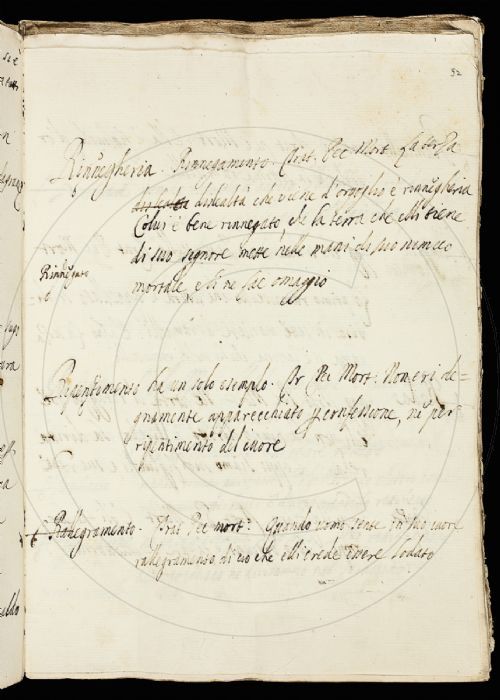 52
Rinnegheria. Rinnegamento. Trat. Pec Mort. La terza
dislealtà che viene d'orgoglio è rinnegheria
Colui è bene rinnegato, che la terra che elli tiene
di suo signore mette nelle mani di suo nemico
Rinnegato
mortale e li ne fae omaggio
Ripentimento ha un solo esemplo. Tr Pec Mort: Non eri de=
gnamente apparecchiato p confessione, nè per
ripentimento del cuore
Rallegramento. Trat Pec mort: Quando uomo sente in suo cuore
rallegramento di ciò che elli crede essere lodato